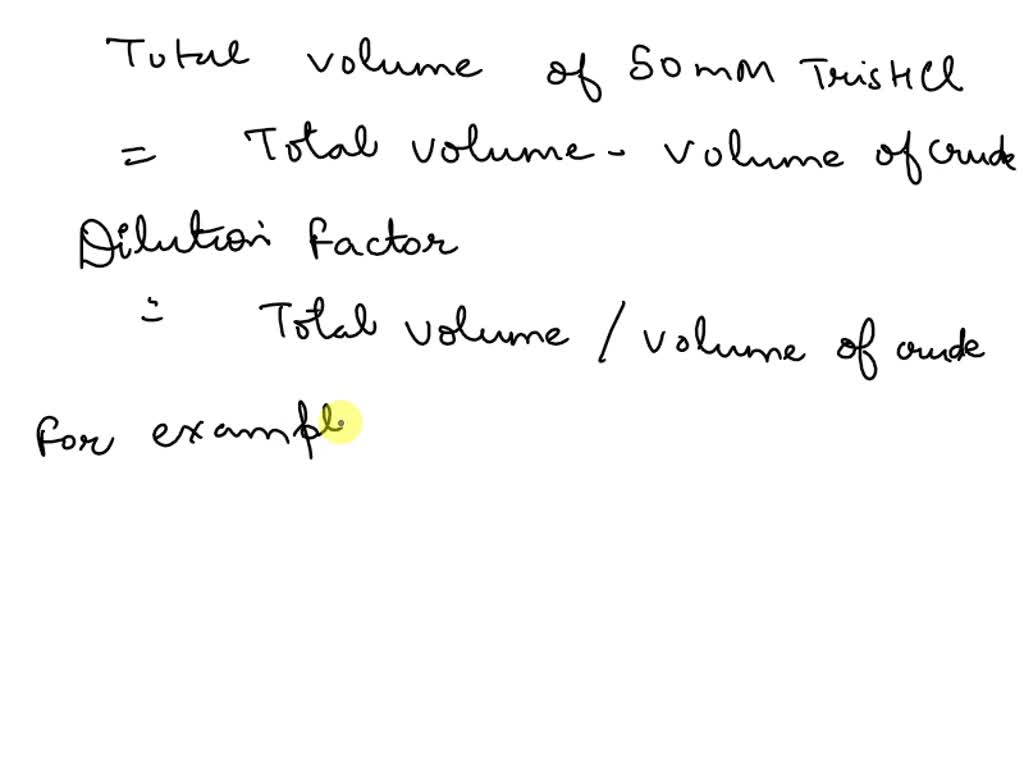 Total volume of 50mM TrisHCl
= Total volume - volume of crude
Dilution factor
= Total volume / volume of crude
for example